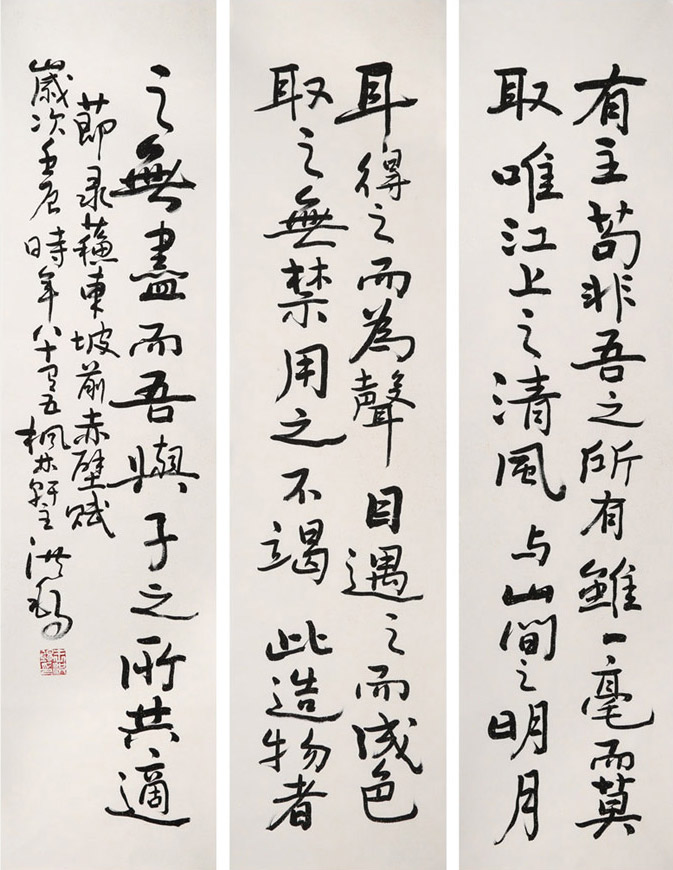 有主苟非吾之所有雖一毫而莫
取唯江上之清風与山間之明月
耳得之而為聲目遇之而成色
取之無禁用之不竭此造物者
之無盡而吾與子之所共適
節录蘓東坡前赤壁賦
歲次壬辰時年八十有五楓林軒主洪